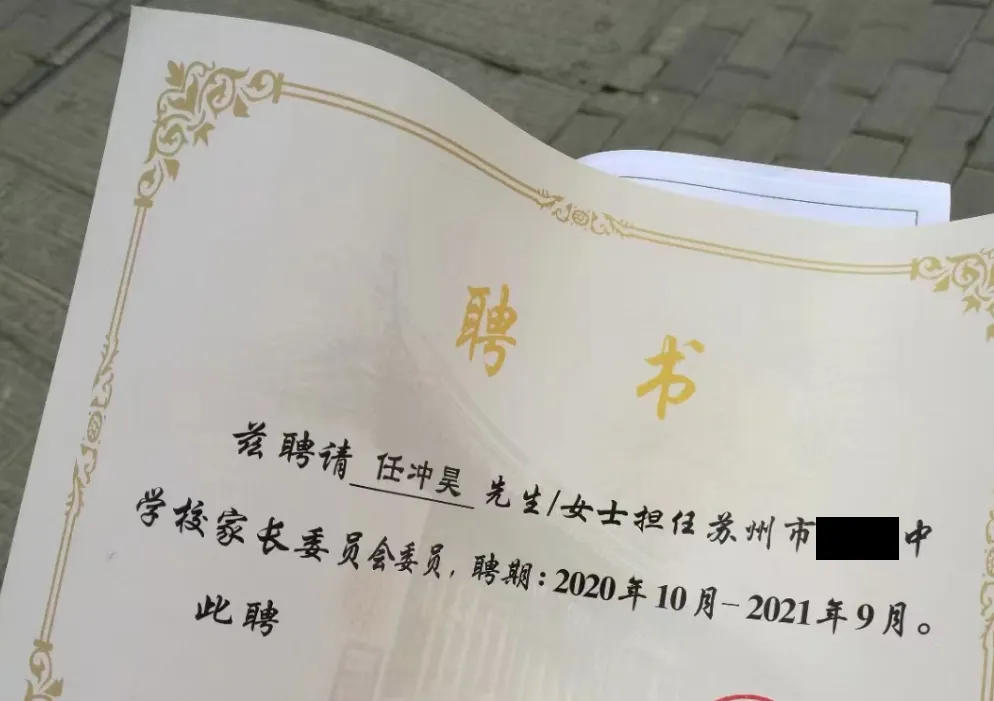 聘书
兹聘请 任冲昊 先生/女士担任苏州市 中
学校家长委员会委员，聘期：2020年10月－2021年9月。
此聘